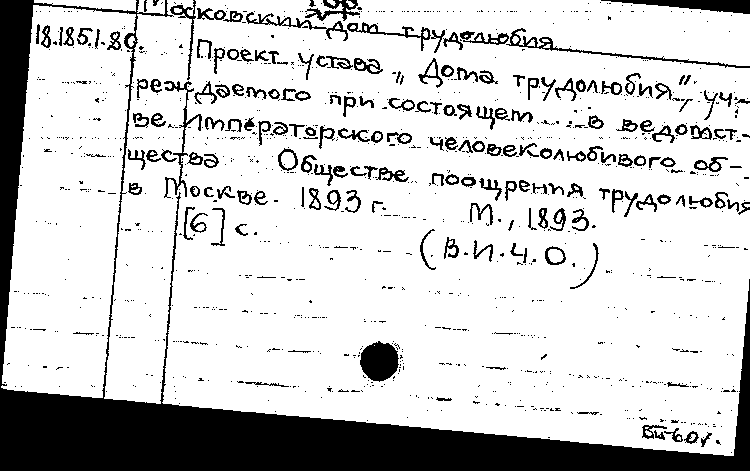 Московский дом трудолюбия
18.185.1.80. Проект устава „Дома трудолюбия", уч-
реждаемого при состоящем ... в ведомст-
ве Императорского человеколюбивого об-
щества Обществе поощрения трудолюбия
в Москве. 1893 г. М., 1893.
[6] с. (В.И.Ч.О.)